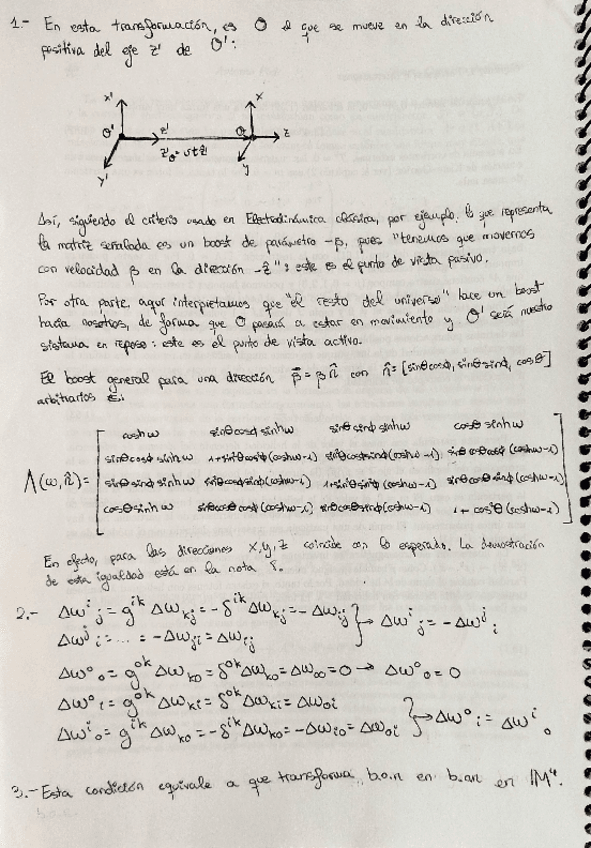 1.- En esta transformación, es O el que se mueve en la dirección
positiva del eje z' de O':
x' x
O' z' O z
z'₀ = vt ẑ'
y' y
Así, siguiendo el criterio usado en Electrodinámica clásica, por ejemplo, lo que representa
la matriz señalada es un boost de parámetro -β, pues "tenemos que movernos
con velocidad β en la dirección -ẑ": este es el punto de vista pasivo.
Por otra parte, aquí interpretamos que "el resto del universo" hace un boost
hacia nosotros, de forma que O pasará a estar en movimiento y O' será nuestro
sistema en reposo: este es el punto de vista activo.
El boost general para una dirección β⃗ = β n̂ con n̂ = [sinθcosϕ, sinθsinϕ, cosθ]
arbitrarios es:
coshω sinθcosϕ sinhω sinθ sinϕ sinhω cosθ sinhω
sinθcosϕ sinhω 1+sin²θcos²ϕ(coshω-1) sin²θcosϕsinϕ(coshω-1) sinθcosθcosϕ(coshω-1)
Λ(ω,n̂) = sinθsinϕ sinhω sin²θcosϕsinϕ(coshω-1) 1+sin²θsin²ϕ(coshω-1) sinθcosθsinϕ(coshω-1)
cosθ sinhω sinθcosθcosϕ(coshω-1) sinθcosθsinϕ(coshω-1) 1+cos²θ(coshω-1)
En efecto, para las direcciones X, Y, Z coincide con lo esperado. La demostración
de esta igualdad está en la nota
2.- Δωⁱⱼ = gⁱᵏ Δωₖⱼ = -δⁱᵏ Δωₖⱼ = -Δωᵢⱼ
Δωʲᵢ = ... = -Δωⱼᵢ = Δωᵢⱼ } → Δωⁱⱼ = -Δωʲᵢ
Δω⁰₀ = g⁰ᵏ Δωₖ₀ = δ⁰ᵏ Δωₖ₀ = Δω₀₀ = 0 → Δω⁰₀ = 0
Δω⁰ᵢ = g⁰ᵏ Δωₖᵢ = δ⁰ᵏ Δωₖᵢ = Δω₀ᵢ
Δωⁱ₀ = gⁱᵏ Δωₖ₀ = -δⁱᵏ Δωₖ₀ = -Δωᵢ₀ = Δω₀ᵢ } → Δω⁰ᵢ = Δωⁱ₀
3.- Esta condición equivale a que transforma b.o.n en b.o.n en IM⁴.